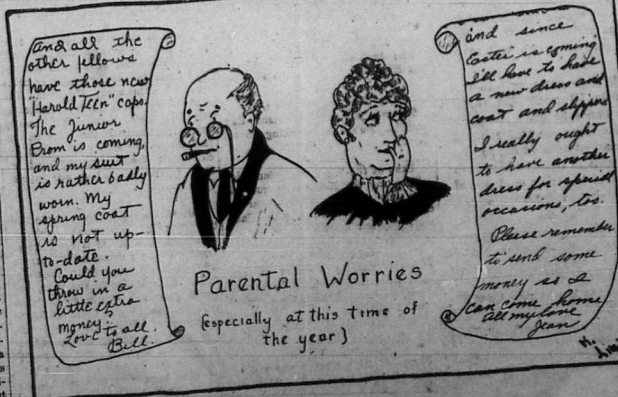 and all the
other fellows
have those new
"Harold Teen" caps.
The Junior
Prom is coming,
and my suit
is rather badly
worn. My
spring coat
is not up-
to-date.
Could you
throw in a
little extra
money?
Love to all.
Bill.
Parental Worries
(especially at this time of
the year)
and since
Easter is coming
I'll have to have
a new dress and
coat and slippers
I really ought
to have another
dress for special
occasions, too.
Please remember
to send some
money so I
can come home
All my love
Jean